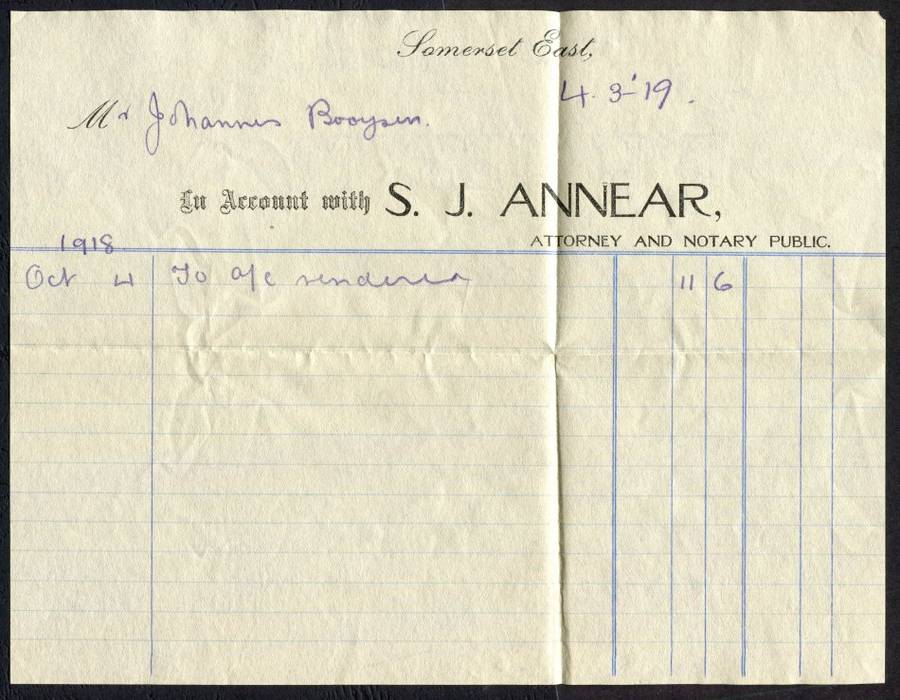 Somerset East,
4.3-'19.
Mr Johannes Booysen.
In Account with S. J. ANNEAR,
ATTORNEY AND NOTARY PUBLIC.
1918
Oct 4 To a/c rendered 11 6